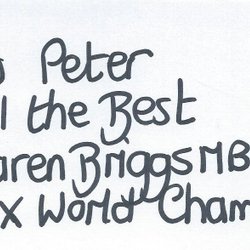 Peter
the Best
aren Briggs MB
x World Cham